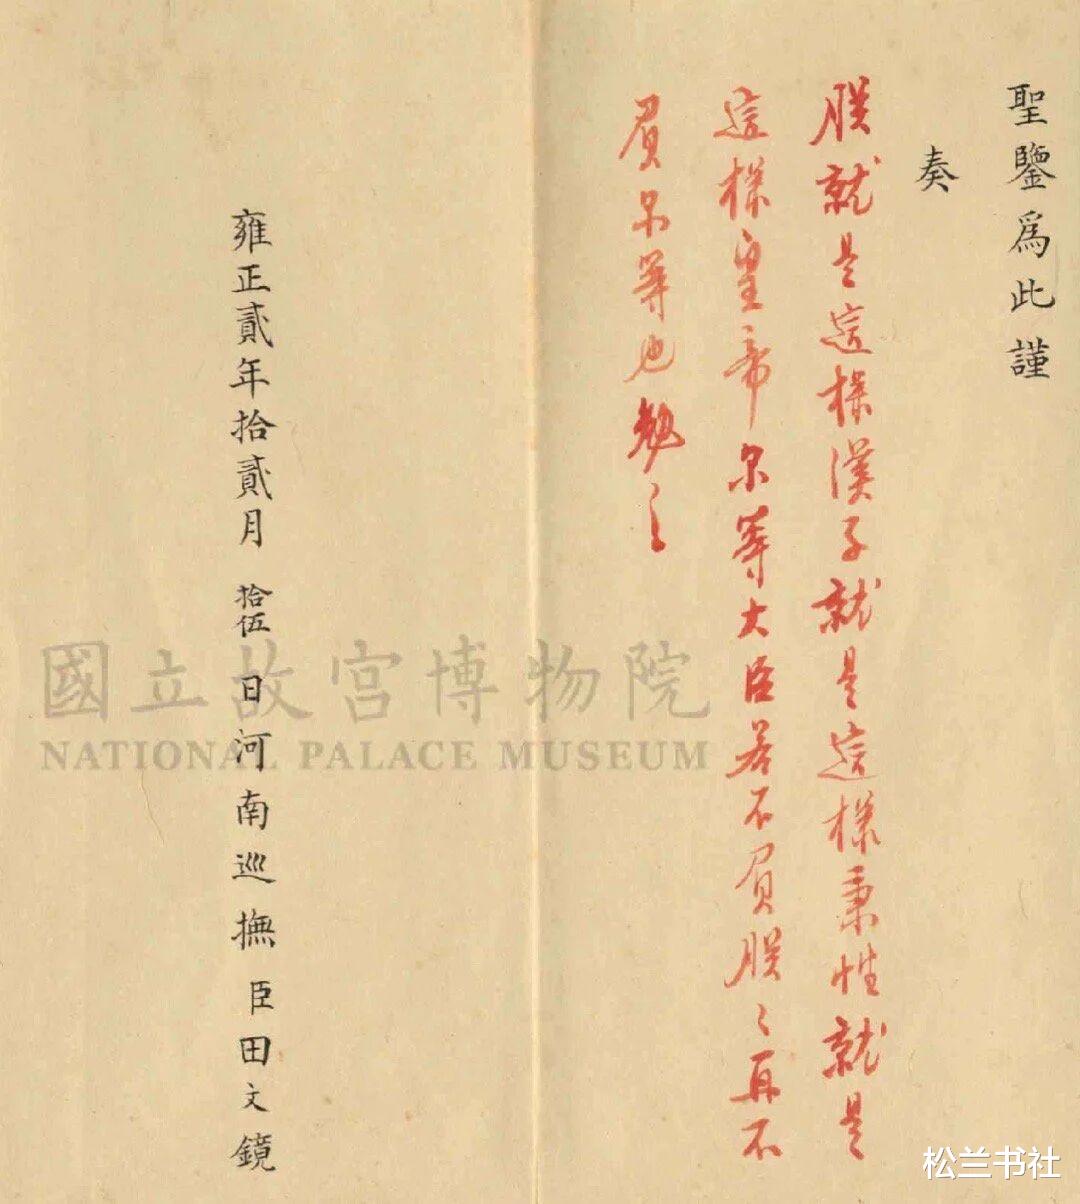 聖鑒為此謹
奏
朕就是這樣漢子就是這樣秉性就是
這樣皇帝尔等大臣若不負朕〻再不
負尔等也勉之
雍正貳年拾貳月拾伍日河南巡撫臣田文鏡
國立故宮博物院
NATIONAL PALACE MUSEUM
松兰书社